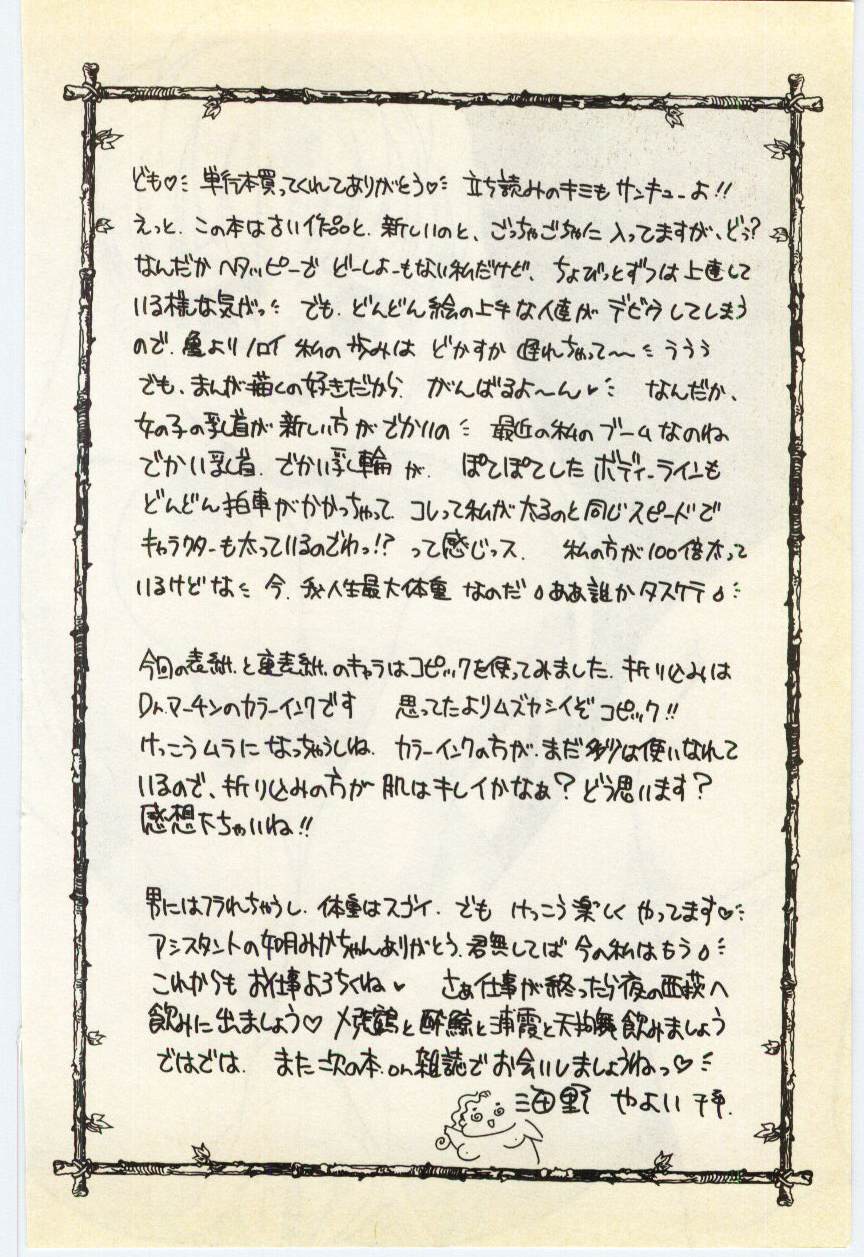 ども♡ 単行本買ってくれてありがとう♡ 立ち読みのキミもサンキューよ!!
えっと、この本は古い作品と、新しいのと、ごっちゃごちゃに入ってますが、どぅ?
なんだかヘタッピーでどーしよーもない私だけど、ちょびっとずつは上達して
いる様な気がっ でも、どんどん絵の上手な人達がデビウしてしまう
ので、亀よりノロイ私の歩みはどかすか遅れちゃって〜 ううう
でも、まんが描くの好きだから、がんばるよ〜ん♥ なんだか、
女の子の乳首が新しい方がでかいの 最近の私のブームなのね
でかい乳首、でかい乳輪が、ぽてぽてしたボディーラインも
どんどん拍車がかかっちゃって、コレって私が太るのと同じスピードで
キャラクターも太っているのでわっ!? って感じっス、 私の方が100倍太って
いるけどな 今、我人生最大体重なのだ ああ誰かタスケテ
今回の表紙と裏表紙のキャラはコピックを使ってみました、折り込みは
Dr.マーチンのカラーインクです 思ってたよりムズカシイぞコピック!!
けっこうムラになっちゃうしね、カラーインクの方が、まだ多少は使いなれて
いるので、折り込みの方が肌はキレイかなぁ? どう思います?
感想下ちゃいね!!
男にはフラれちゃうし、体重はスゴイ、でもけっこう楽しくやってます♡
アシスタントの如月みかちゃんありがとう、君無してば今の私はもう
これからもお仕事よろちくね♥ さぁ仕事が終ったら夜の西荻へ
飲みに出ましょう♡ 〆張鶴と酔鯨と浦霞と天狗舞飲みましょう
ではでは、また次の本、on雑誌でお会いしましょうねっ♡
海野やよい 拝、